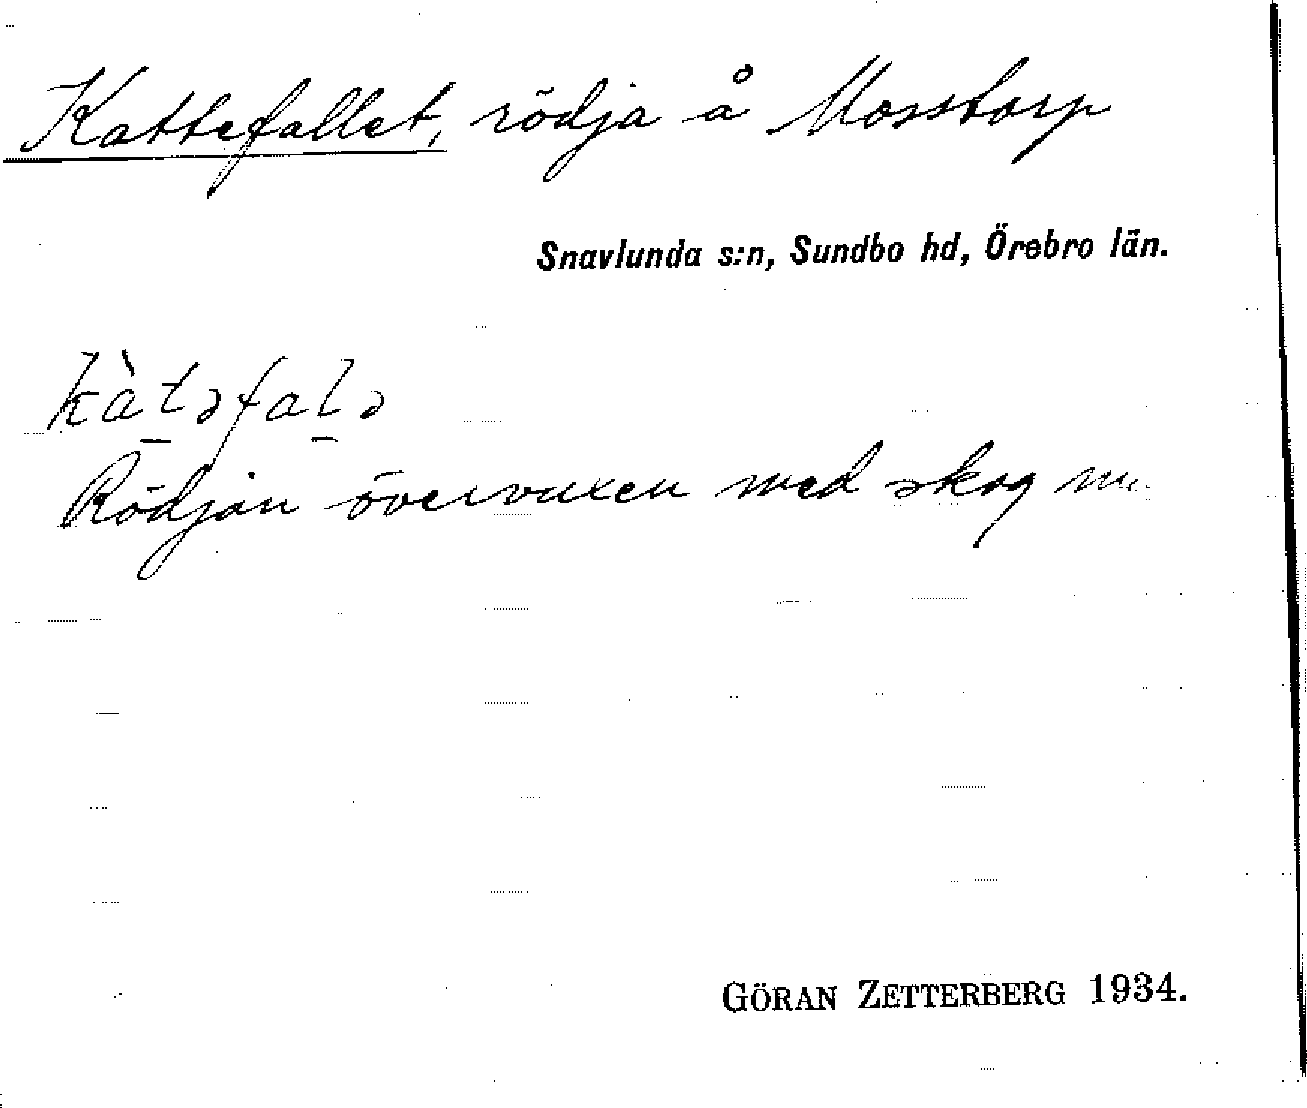 Kattefallet, rödja å Mosstorp
Snavlunda s:n, Sundbo hd, Örebro län.
kàtəfalə
Rödjan övervuxen med skog
GÖRAN ZETTERBERG 1934.